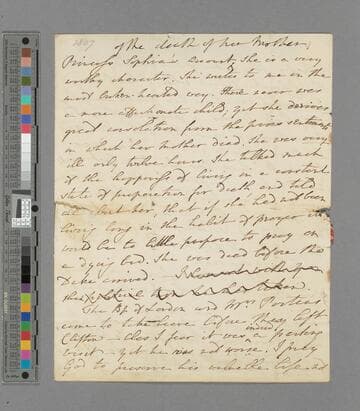 2807
of the death of her Mother,
Princess Sophia's Account, She is a very
worthy character. She writes to me in the
most broken-hearted way. there never was
a more affectionate child, yet she derives
great consolation from the pious sentiments
in which her Mother died. She was very
ill only twelve hours. She talked much
of the happiness of living in a constant
state of preparation for death and told
her, that if she had not been
living long in the habit of prayer it
would be to little purpose to pray on
a dying bed. She was dead before the
Duke arrived.
The Bp of London and Mrs Porteus
came to before they left
Clifton - alas I fear it was a parting
visit - yet he was not worse. I pray
God to preserve his valuable life